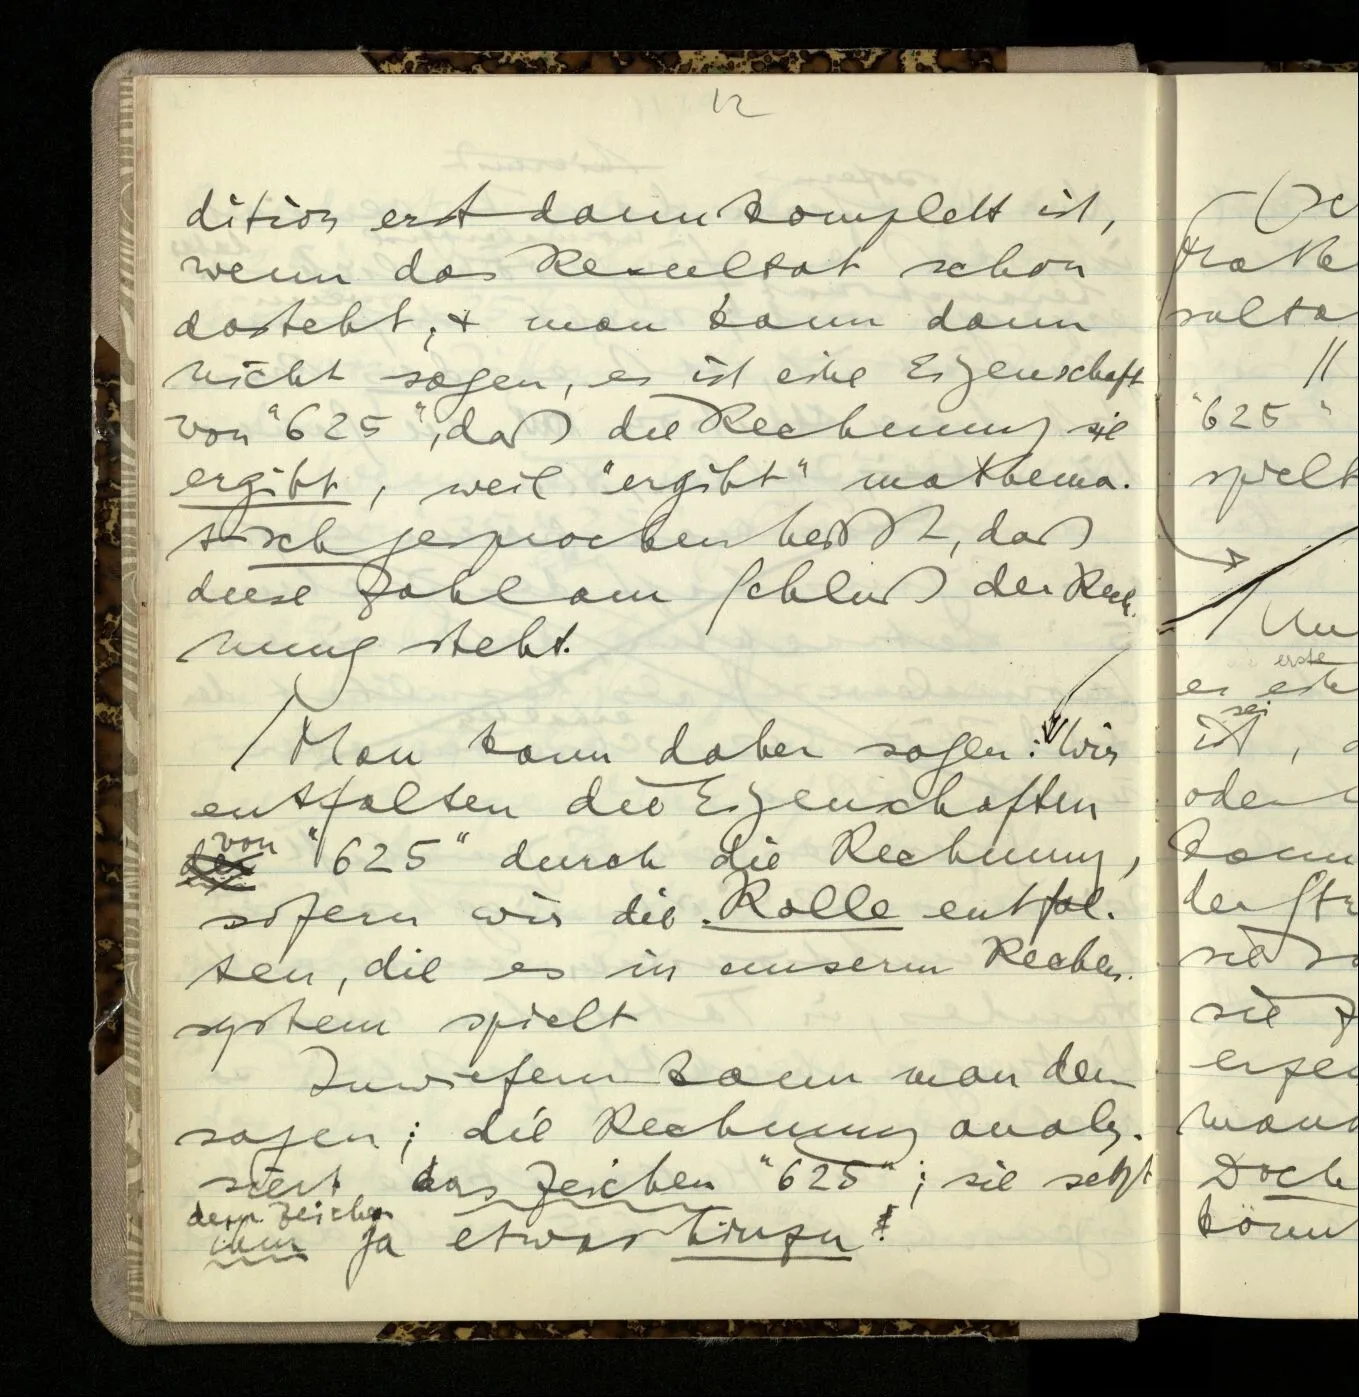 12
dition erst dann komplett ist,
wenn das Resultat schon
dasteht; & man kann dann
nicht sagen, es ist eine Eigenschaft
von "625", daß die Rechnung sie
ergibt, weil "ergibt" mathema-
tisch gesprochen heißt, daß
diese Zahl am Schluß der Rech-
nung steht.
/ Man kann daher sagen: Wir
entfalten die Eigenschaften
von
der "625" durch die Rechnung,
sofern wir die Rolle entfal-
ten, die es in unserm Rechen-
system spielt
Inwiefern kann man denn
sagen; die Rechnung analy-
siert das Zeichen "625"; sie setzt
dem Zeichen
ihm ja etwas hinzu!
//
"625"
spielt
erste
sei
ist,
oder
kann
der
sie
sie
Doch